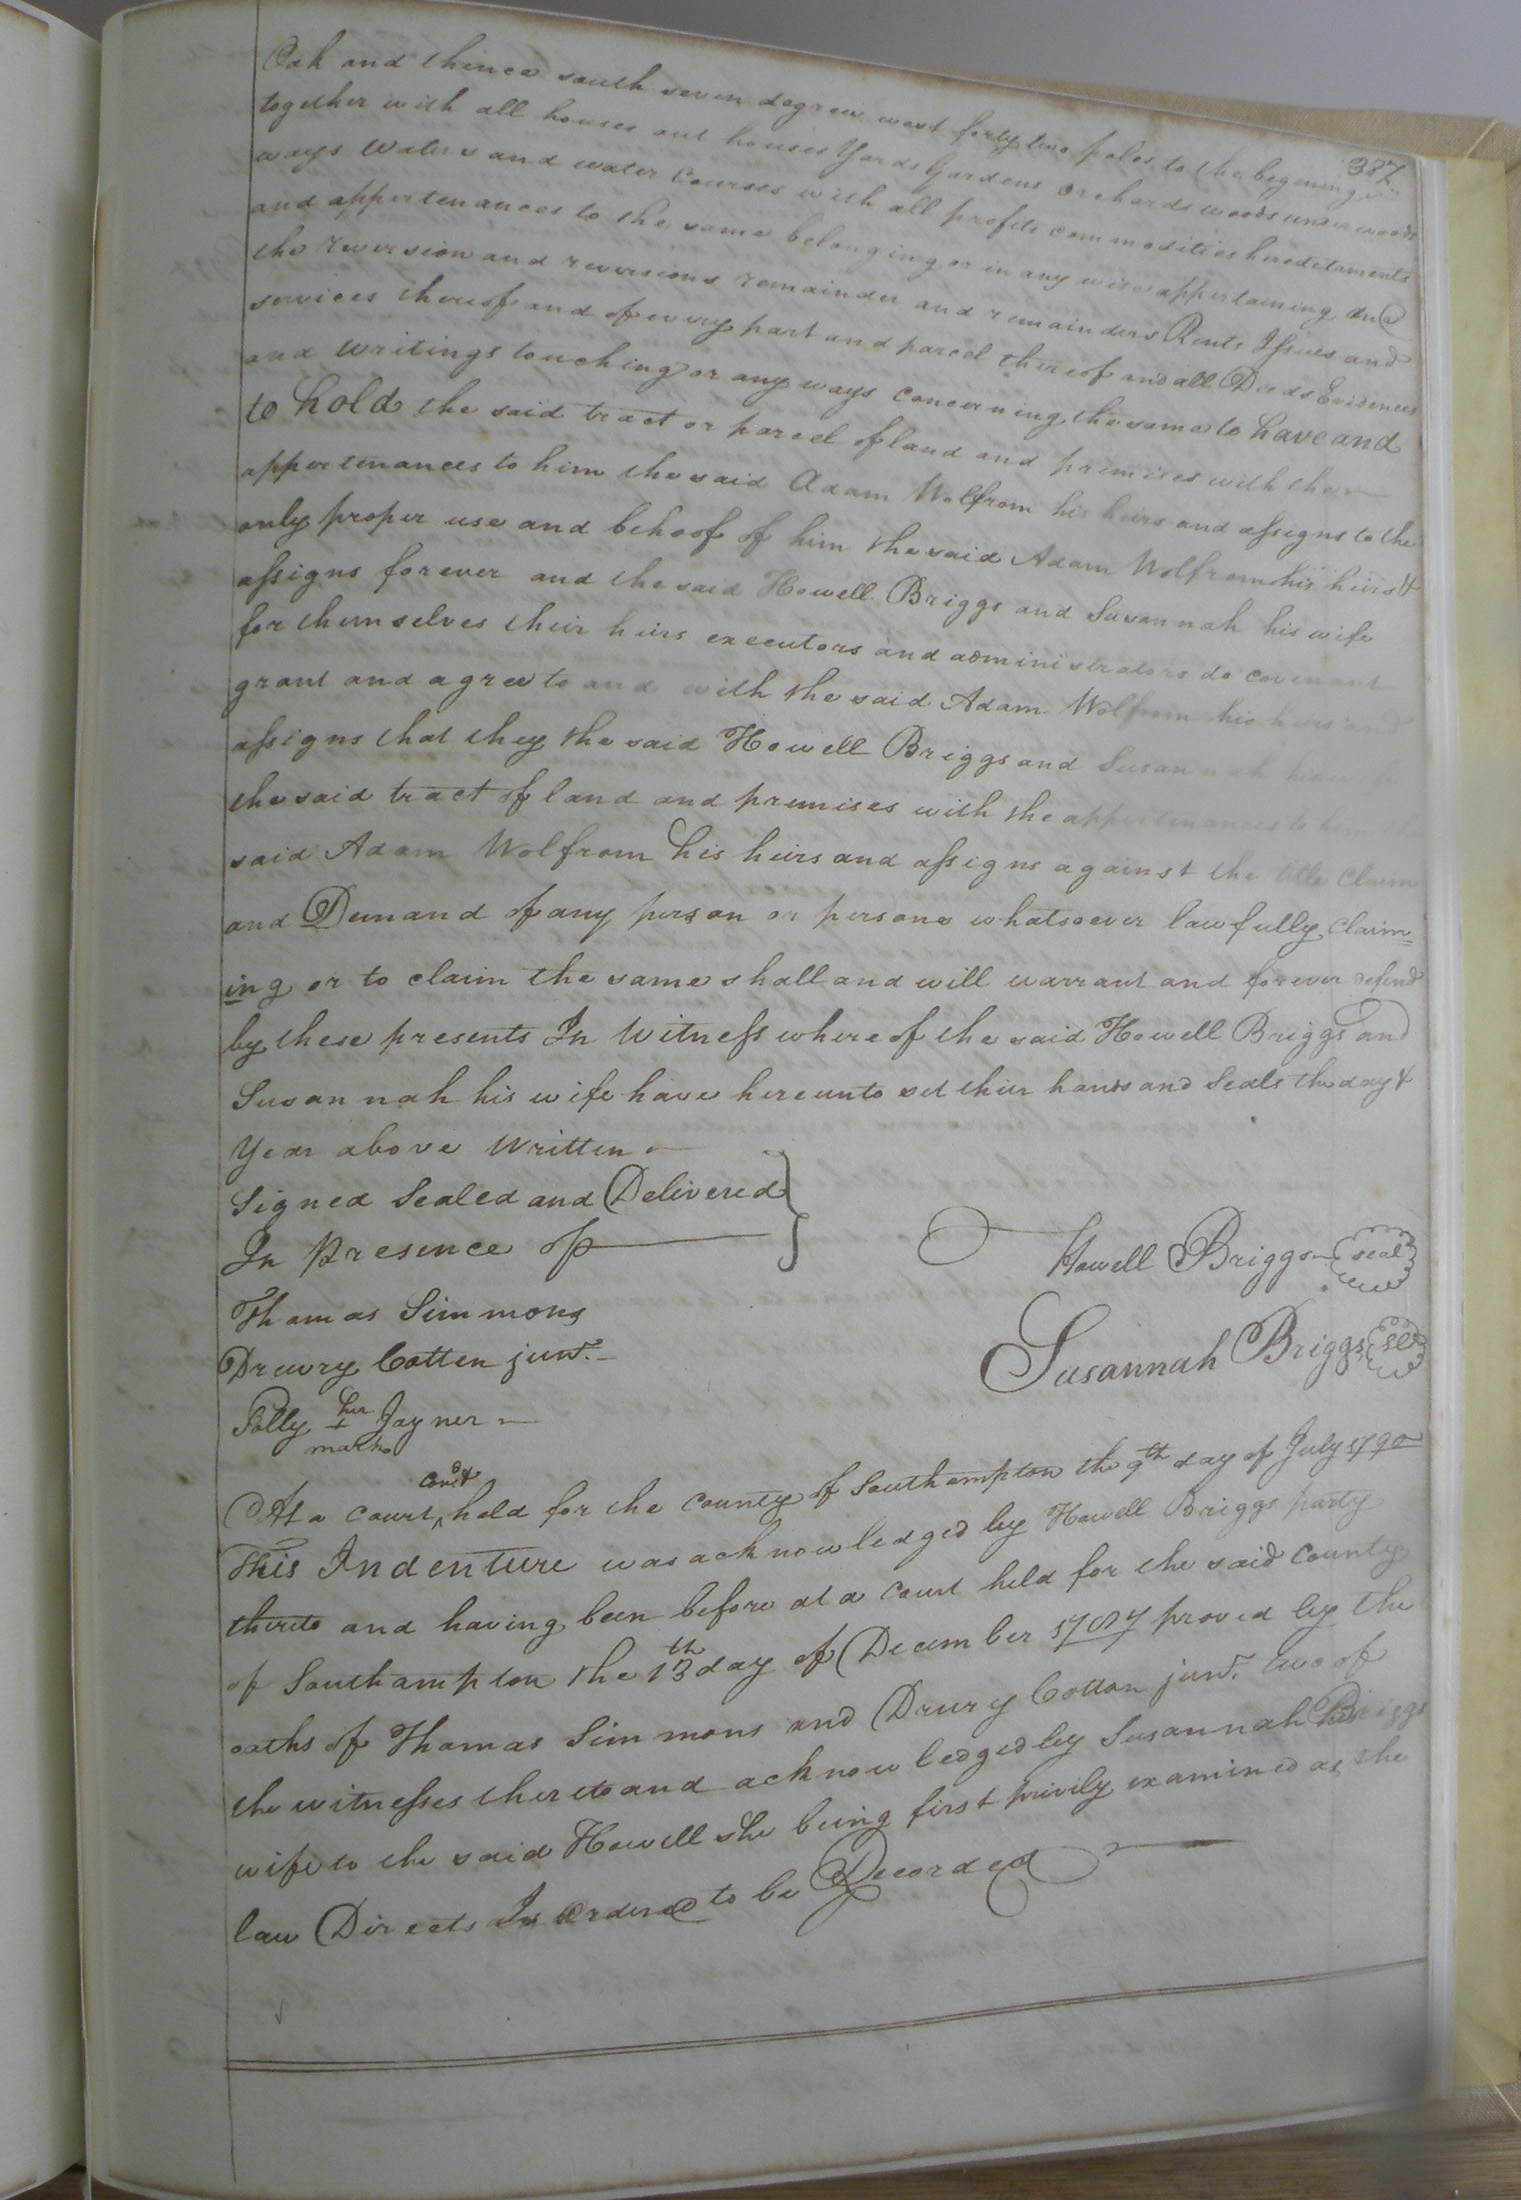 387
Oak and thence south seven degrees west forty two poles to the begening
together with all houses out houses Yards Gardens Orchards woods under woods
ways Waters and water Courses with all profits commodities hereditaments
and appertenances to the same belonging or in any wise appertaining And
the reversion and reversions remainder and remainders Rents Issues and
services thereof and of every part and parcel thereof and all Deeds Evidences
and Writings touching or any ways Concerning the same to have and
to hold the said tract or parcel of land and premises with the
appertenances to him the said Adam Wolfrom his heirs and assigns to the
only proper use and behoof of him the said Adam Wolfrom his heirs &
assigns forever and the said Howell Briggs and Susannah his wife
for themselves their heirs executors and administrators do covenant
grant and agree to and with the said Adam Wolfrom his heirs and
assigns that they the said Howell Briggs and Susannah his
the said tract of land and premises with the appertenances to
said Adam Wolfrom his heirs and assigns against the title Claim
and Demand of any person or persons whatsoever lawfully Claim=
ing or to claim the same shall and will warrant and forever defend
by these presents In Witness whereof the said Howell Briggs and
Susannah his wife have hereunto set their hands and Seals the day &
Year above Written
Signed Sealed and Delivered
In Presence of
Howell Briggs seal
Thomas Simmons
Susannah Briggs
Drewry Cotten junr.
Polly her + mark Jayner
At a Court, Contd held for the County of Southampton the 9th day of July 1790
This Indenture was acknowledged by Howell Briggs party
thereto and having been before at a court held for the said County
of Southampton the 13th day of December 1787 proved by the
oaths of Thomas Simmons and Drury Cotton junr. two of
the witnesses thereto and acknowledged by Susannah Briggs
wife to the said Howell she being first privily examined as the
law Directs Is Ordered to be Recorded